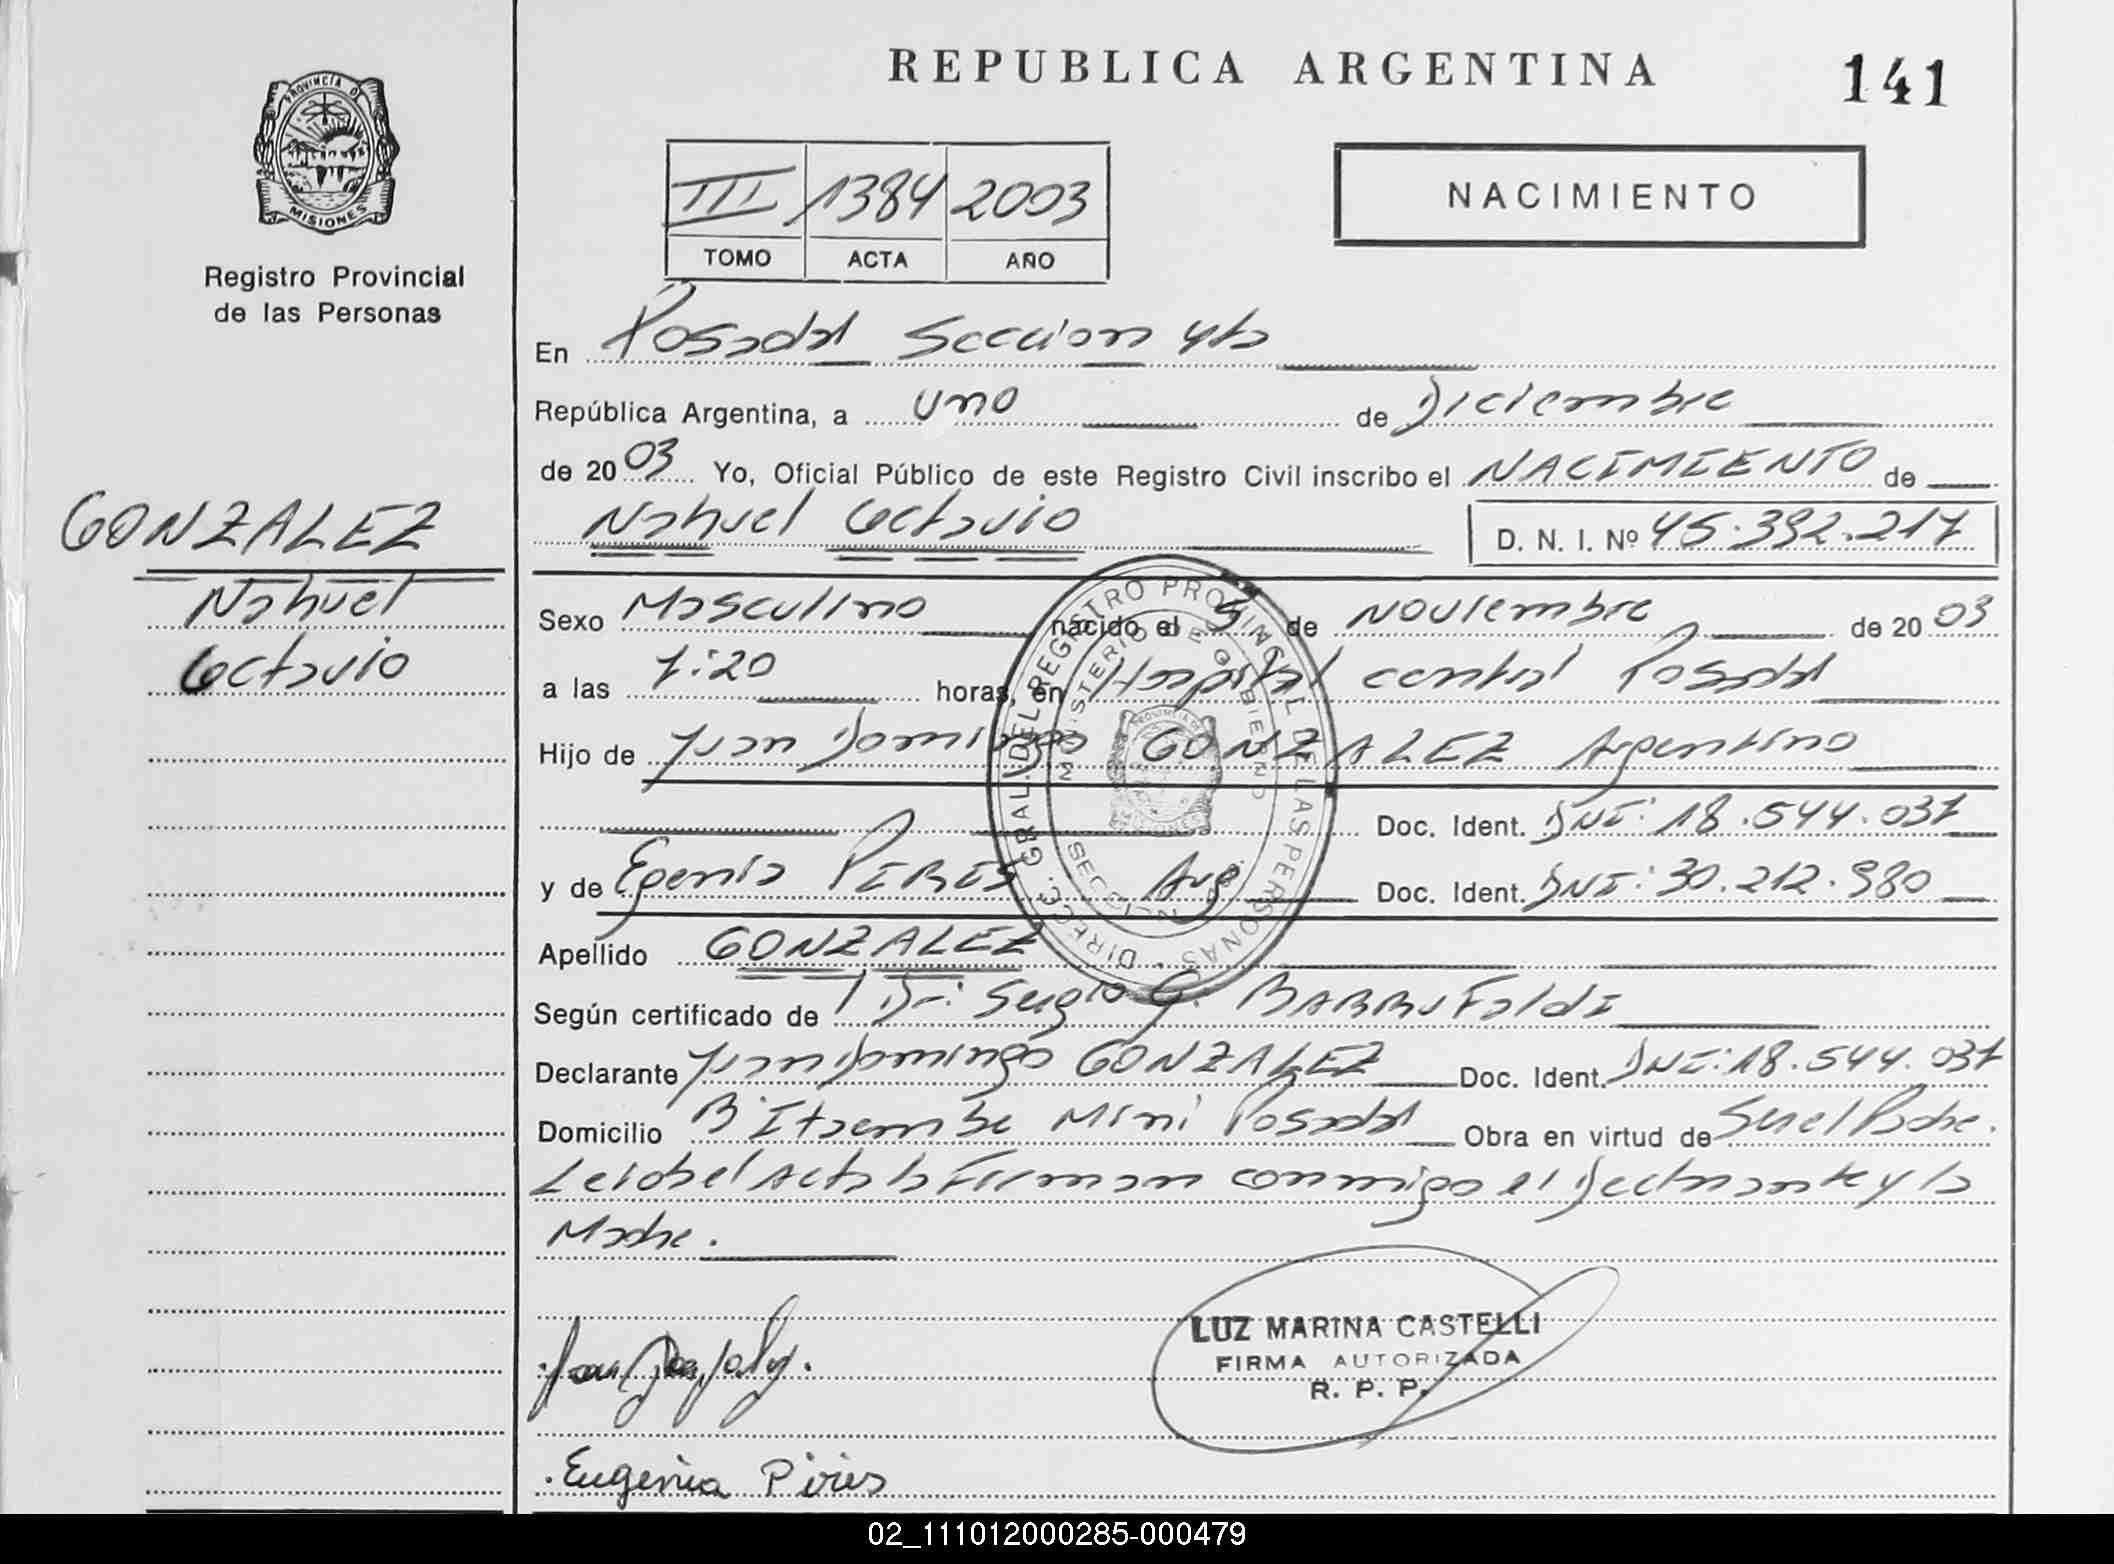 REPUBLICA ARGENTINA
141
PROVINCIA DE
MISIONES
Registro Provincial
de las Personas
III 1384 2003
TOMO ACTA AÑO
NACIMIENTO
En Posadas Seccion 4ta
República Argentina, a uno de Diciembre
de 2003 Yo, Oficial Público de este Registro Civil inscribo el NACIMIENTO de
Nahuel Octavio D. N. I. Nº 45.392.217
GONZALEZ
Nahuel
Octavio
Sexo Masculino nacido el 5 de Noviembre de 2003
a las 7:20 horas, en Hospital central Posadas
Hijo de Juan Domingo GONZALEZ Argentino
Doc. Ident. DNI: 18.544.037
y de Egenia PIRES Arg. Doc. Ident. DNI: 30.212.980
Apellido GONZALEZ
Según certificado de Dr: Sergio G.
Declarante Juan Domingo GONZALEZ Doc. Ident. DNI: 18.544.037
Domicilio Bº Itaembe Mini Posadas Obra en virtud de Ser el Padre.
Leida el Acta la Firman conmigo el Declarante y la
Madre.
DIRECC. GRAL. DEL REGISTRO PROVINCIAL DE LAS PERSONAS
MINISTERIO DE GOBIERNO
LUZ MARINA CASTELLI
FIRMA AUTORIZADA
R. P. P.
Eugenia Pires
02_111012000285-000479